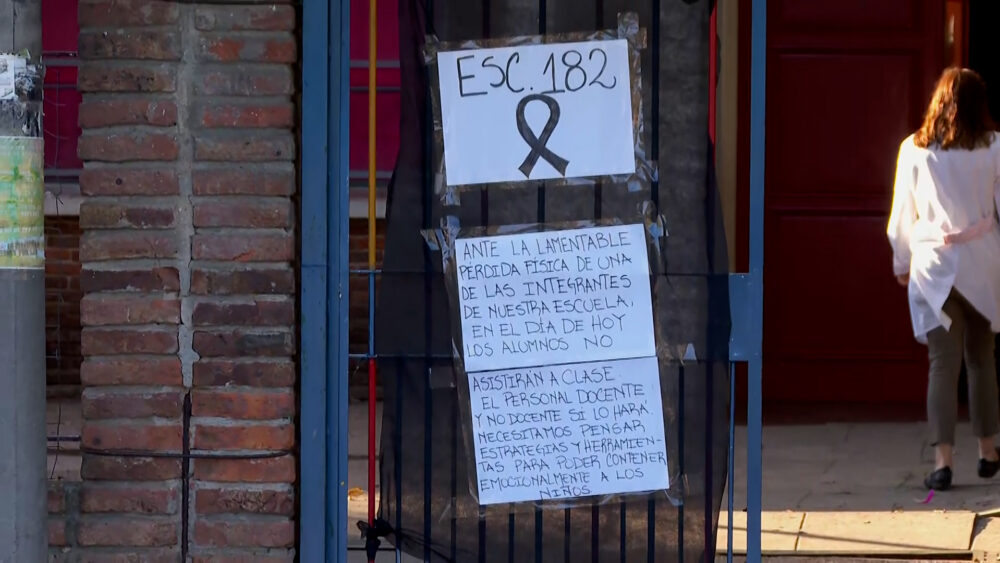 ESC. 182
ANTE LA LAMENTABLE
PÉRDIDA FÍSICA DE UNA
DE LAS INTEGRANTES
DE NUESTRA ESCUELA,
EN EL DÍA DE HOY
LOS ALUMNOS NO
ASISTIRÁN A CLASE.
EL PERSONAL DOCENTE
Y NO DOCENTE SI LO HARÁ.
NECESITAMOS PENSAR
ESTRATEGIAS Y HERRAMIEN-
TAS PARA PODER CONTENER
EMOCIONALMENTE A LOS
NIÑOS